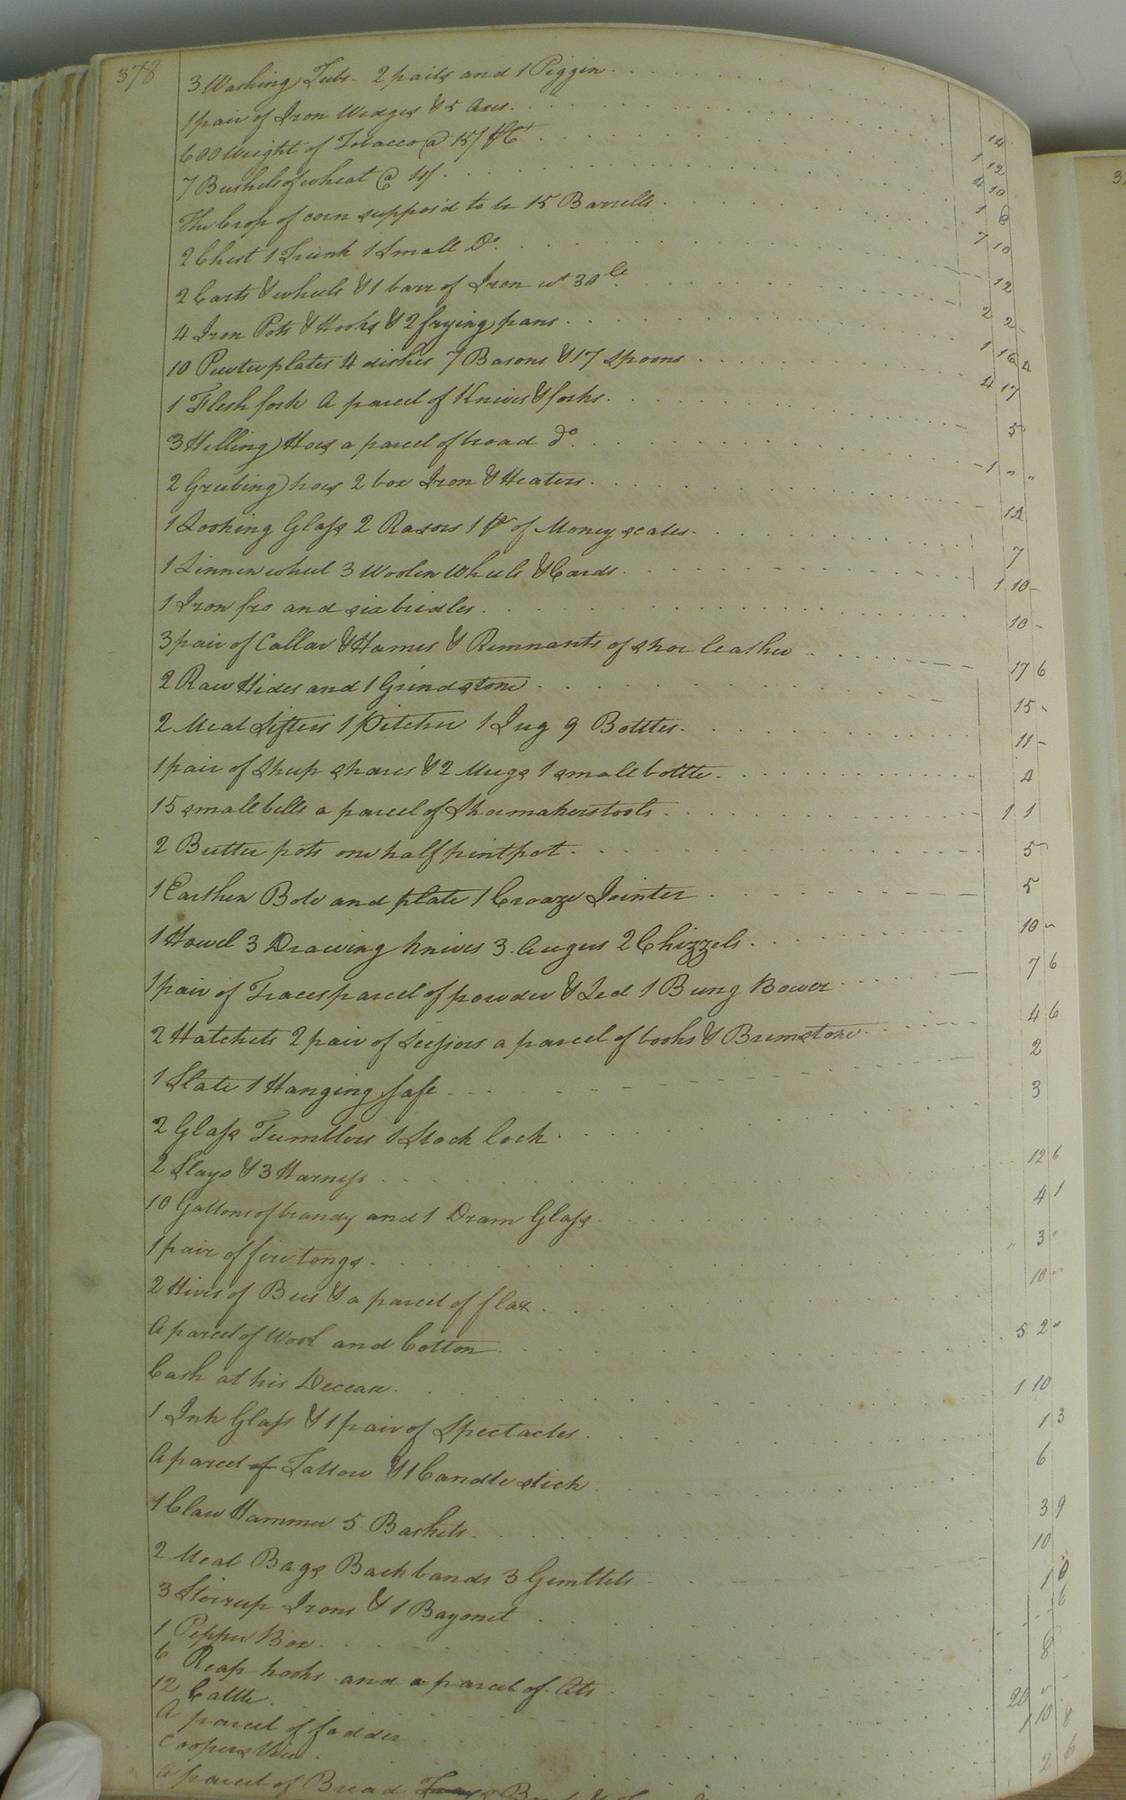 378
3 Washing Tubs. 2 pails and 1 Piggin 14
1 pair of Iron Wedges & 5 Axes. 1 12
600 Weight of Tobacco @ 15/ 4 10
7 Bushels of wheat @ 4/ 1 8
The Crop of corn supposd to be 15 Barrells 7 10
2 Chest 1 Trunk 1 Small Do. 12
2 Carts & wheels & 1 barr of Iron wt 30 lb 2 2
4 Iron Pots & Hooks & 2 frying pans 1 16 4
10 Pewter plates 4 dishes 7 Basons & 17 spoons 4 17
1 Flesh fork A parcel of Knives & forks. 5
3 Hilling Hoes a parcel of broad do 1 " "
2 Grubing hoes 2 box Iron & Heaters. 12
1 Looking Glass 2 Rasors 1 pr of Money scales. 7
1 Linnen wheel 3 Woolen Wheels & Cards 1 10 -
1 Iron fro and six bridles. 10 -
3 pair of Collar & Hames & Remnants of shoe leather 17 6
2 Raw Hides and 1 Grindstone 15 -
2 Meal Sifters 1 Pitcher 1 Jug 9 Bottles. 11 -
1 pair of sheep shares & 2 Mugs 1 small bottle. 4
15 small bells a parcel of Shoemakers tools 1 1
2 Butter pots one half pint pot. 5
1 Earthen Bole and plate 1 Croaze Jointer 5
1 Howel 3 Drawing knives 3 Augers 2 Chizzels. 10 "
1 pair of Traces parcel of powder & Led 1 Bung Bower 7 6
2 Hatchets 2 pair of Scissors a parcel of books & Brimstone 4 6
1 Slate 1 Hanging safe 2
2 Glass Tumblers 1 Stock lock 3
2 Slays & 3 Harness 12 6
10 Gallons of brandy and 1 Dram Glass 4 1
1 pair of fire tongs. " 3 "
2 Hives of Bees & a parcel of flax 10 "
A parcel of Wool and Cotton 5 2 "
Cash at his Decease. 1 10
1 Ink Glass & 1 pair of Spectacles 1 3
A parcel of Tallow & 1 Candle stick 6
1 Claw Hammer 5 Baskets. 3 9
2 Meal Bags Back bands 3 Gimblets 10
3 Stirrup Irons & 1 Bayonet 1
1 Pepper Box 6
6 Reap hooks and a parcel of Ots 8
12 Cattle. 20 "
A parcel of fodder 1 10 8
Coopers Vice. 2 6
A parcel of Bread